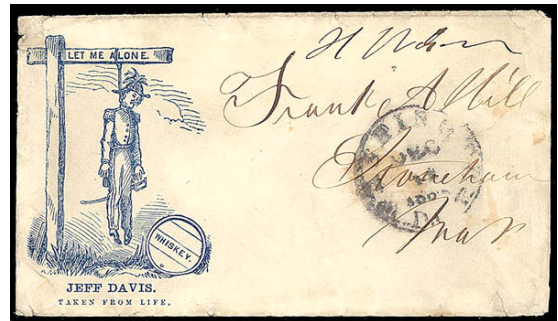 LET ME ALONE.
WHISKEY.
JEFF DAVIS.
TAKEN FROM LIFE.
Frank A Hill
Stoneham
Mass
DEC